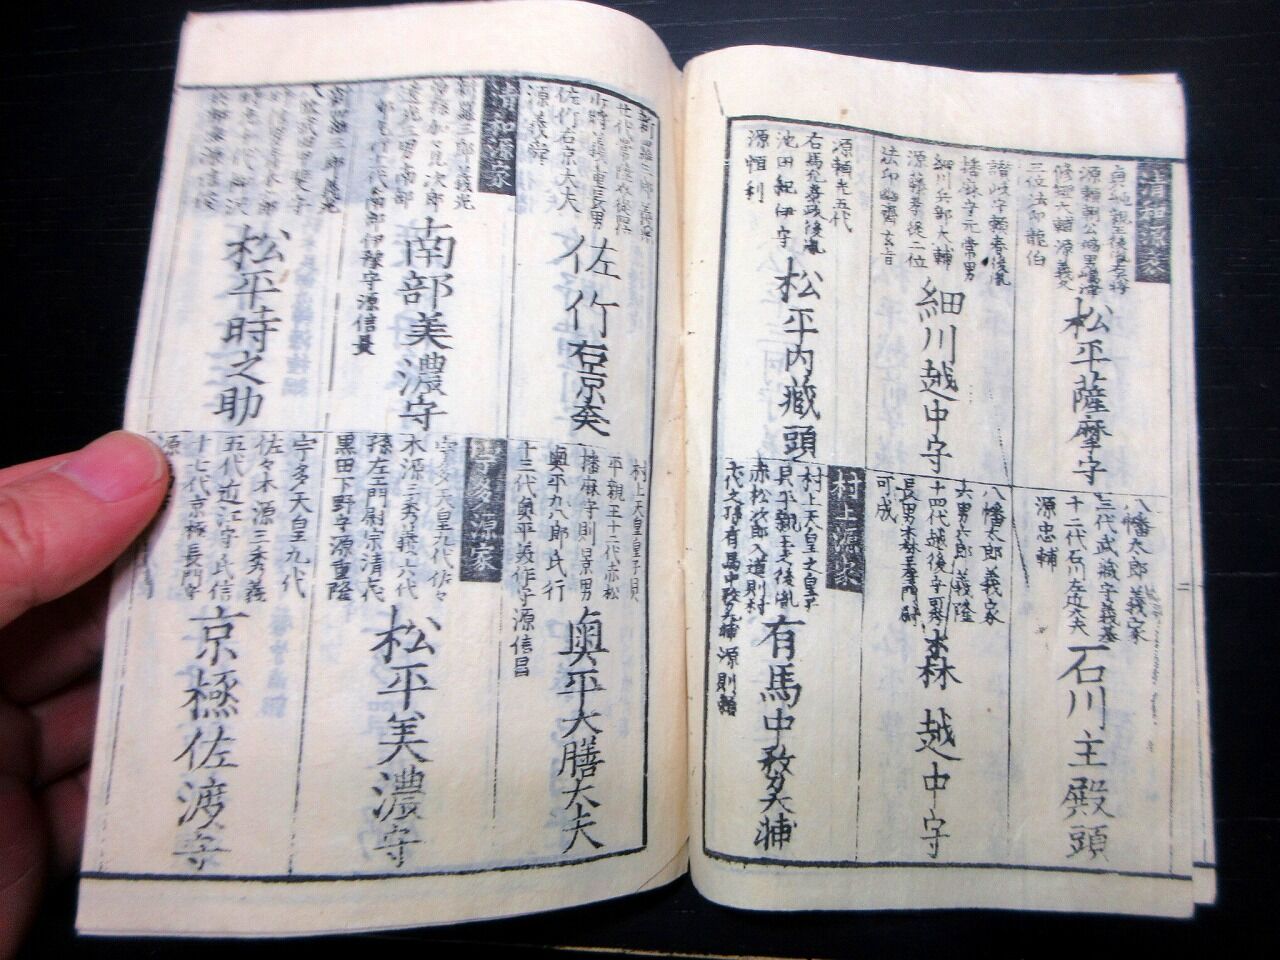 清和源家
三位法印龍伯
松平薩摩守
播磨守元常男
細川兵部大輔
源藤孝従二位
法印幽齋玄旨
細川越中守
源頼光五代
右馬允泰政後胤
池田紀伊守
源恒利
松平内蔵頭
八幡太郎義家
三代武蔵守義基
十二代石川左近大夫
源忠輔
石川主殿頭
八幡太郎義家
六男兵部義隆
十四代越後守
可成
森越中守
村上源家
村上天皇之皇子
具平親王之後胤
赤松次郎入道則村
七代之孫有馬中務大輔源則頼
有馬中務大輔
新羅三郎義光
佐竹右京大夫
源義舜
佐竹右京大夫
清和源家
新羅三郎義光
南部美濃守
新羅三郎義光
松平時之助
村上天皇皇子具
平親王十二代赤松
播麻守則景男
奥平九八郎氏行
十三代貞平美作守源信昌
奥平大膳大夫
宇多源家
宇多天皇九代佐々
木源三秀義六代
孫左エ門尉宗清末
黒田下野守源重隆
松平美濃守
宇多天皇九代
佐々木源三秀義
五代近江守氏信
十七代京極長門守
源
京極佐渡守
二